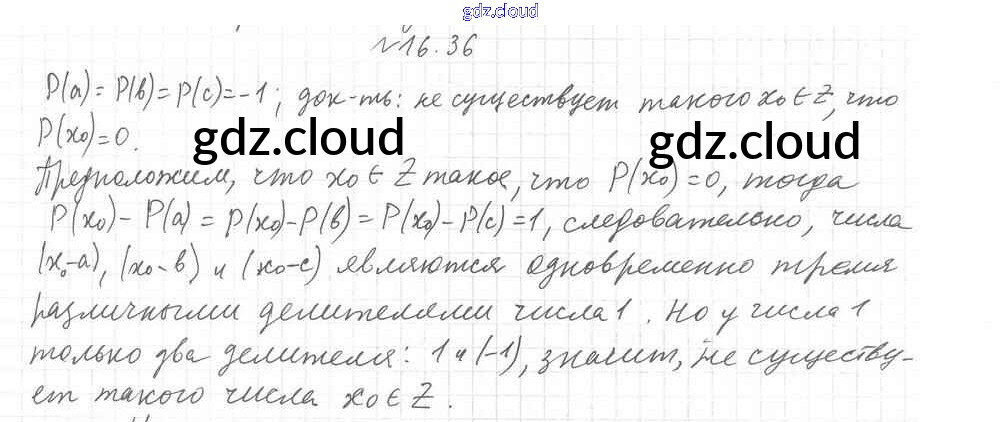 gdz.cloud
№16.36
P(a)=P(b)=P(c)=-1; док-ть: не существует такого x₀∈Z, что
P(x₀)=0.
gdz.cloud
gdz.cloud
Предположим, что x₀∈Z такое, что P(x₀)=0, тогда
P(x₀)-P(a)=P(x₀)-P(b)=P(x₀)-P(c)=1, следовательно, числа
(x₀-a), (x₀-b) и (x₀-c) являются одновременно тремя
различными делителями числа 1. Но у числа 1
только два делителя: 1 и (-1), значит, не существу-
ет такого числа x₀∈Z.